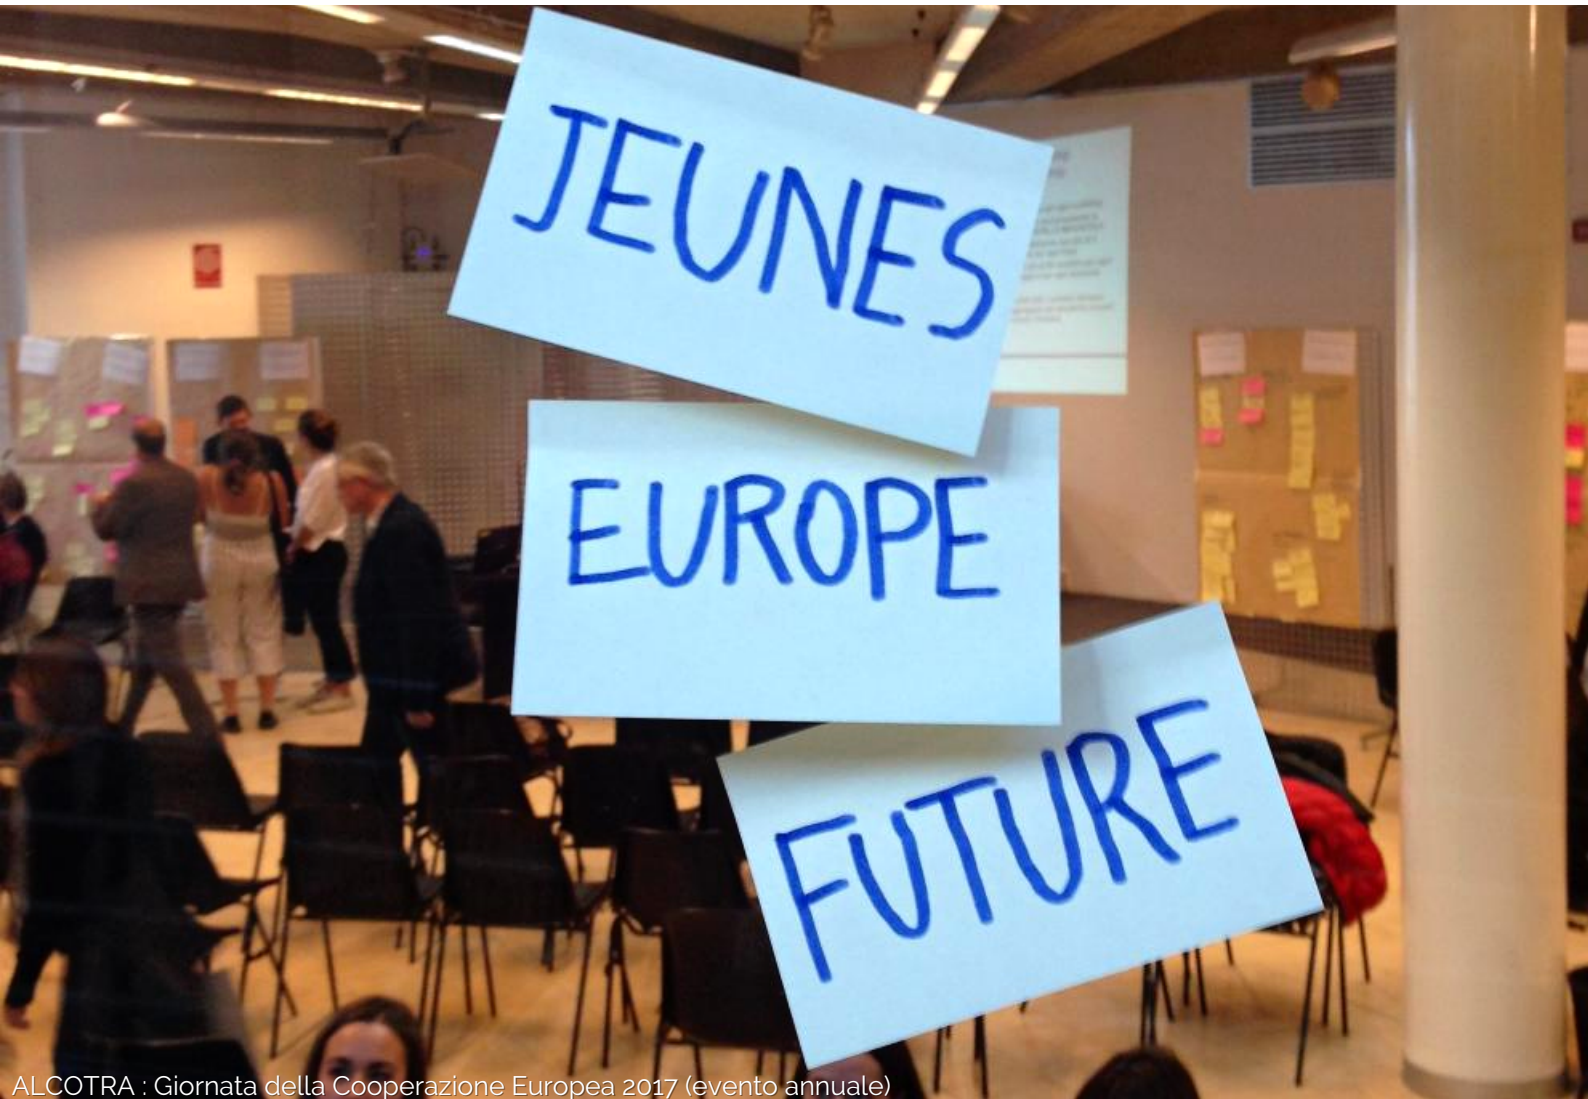 JEUNES
EUROPE
FUTURE
ALCOTRA : Giornata della Cooperazione Europea 2017 (evento annuale)